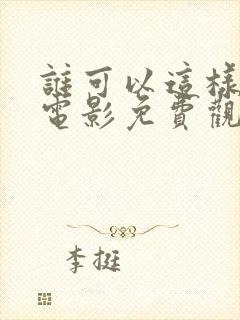 誰可以這樣
電影免費觀
李挺